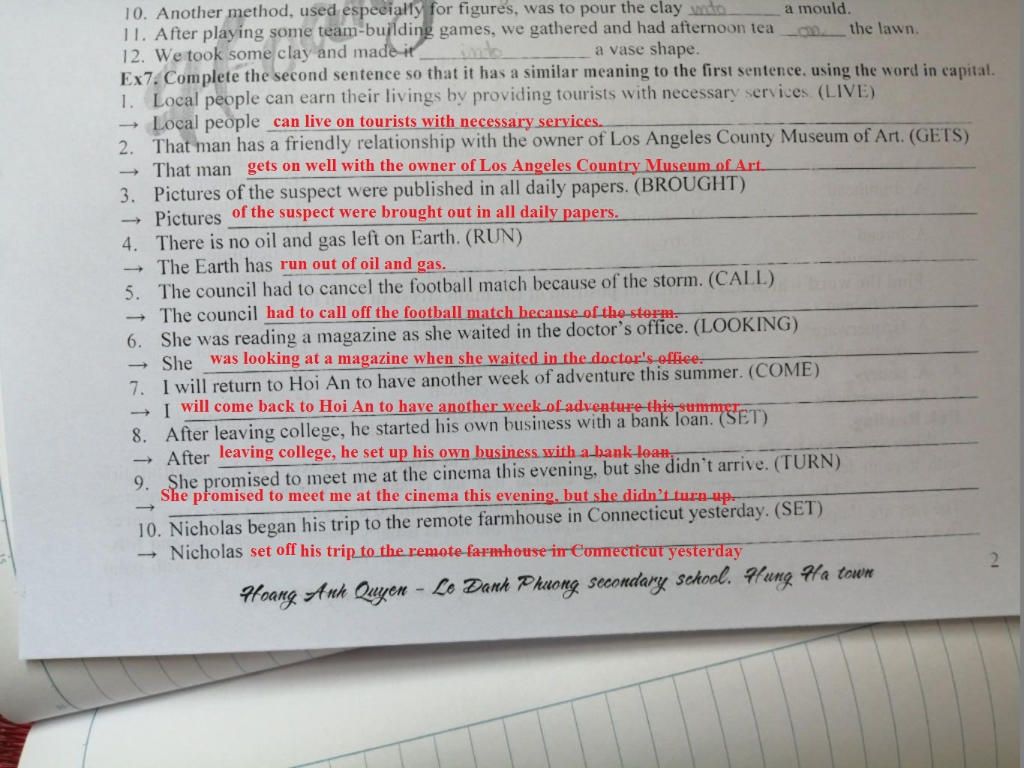 10. Another method, used especially for figures, was to pour the clay into a mould.
11. After playing some team-building games, we gathered and had afternoon tea on the lawn.
12. We took some clay and made it into a vase shape.
Ex7. Complete the second sentence so that it has a similar meaning to the first sentence. using the word in capital.
1. Local people can earn their livings by providing tourists with necessary services. (LIVE)
→ Local people can live on tourists with necessary services.
2. That man has a friendly relationship with the owner of Los Angeles County Museum of Art. (GETS)
→ That man gets on well with the owner of Los Angeles Country Museum of Art.
3. Pictures of the suspect were published in all daily papers. (BROUGHT)
→ Pictures of the suspect were brought out in all daily papers.
4. There is no oil and gas left on Earth. (RUN)
→ The Earth has run out of oil and gas.
5. The council had to cancel the football match because of the storm. (CALL)
→ The council had to call off the football match because of the storm.
6. She was reading a magazine as she waited in the doctor's office. (LOOKING)
→ She was looking at a magazine when she waited in the doctor's office.
7. I will return to Hoi An to have another week of adventure this summer. (COME)
→ I will come back to Hoi An to have another week of adventure this summer.
8. After leaving college, he started his own business with a bank loan. (SET)
→ After leaving college, he set up his own business with a bank loan.
9. She promised to meet me at the cinema this evening, but she didn't arrive. (TURN)
→ She promised to meet me at the cinema this evening, but she didn't turn up.
10. Nicholas began his trip to the remote farmhouse in Connecticut yesterday. (SET)
→ Nicholas set off his trip to the remote farmhouse in Connecticut yesterday
2
Hoang Anh Quyen - Le Danh Phuong secondary school. Hung Ha town